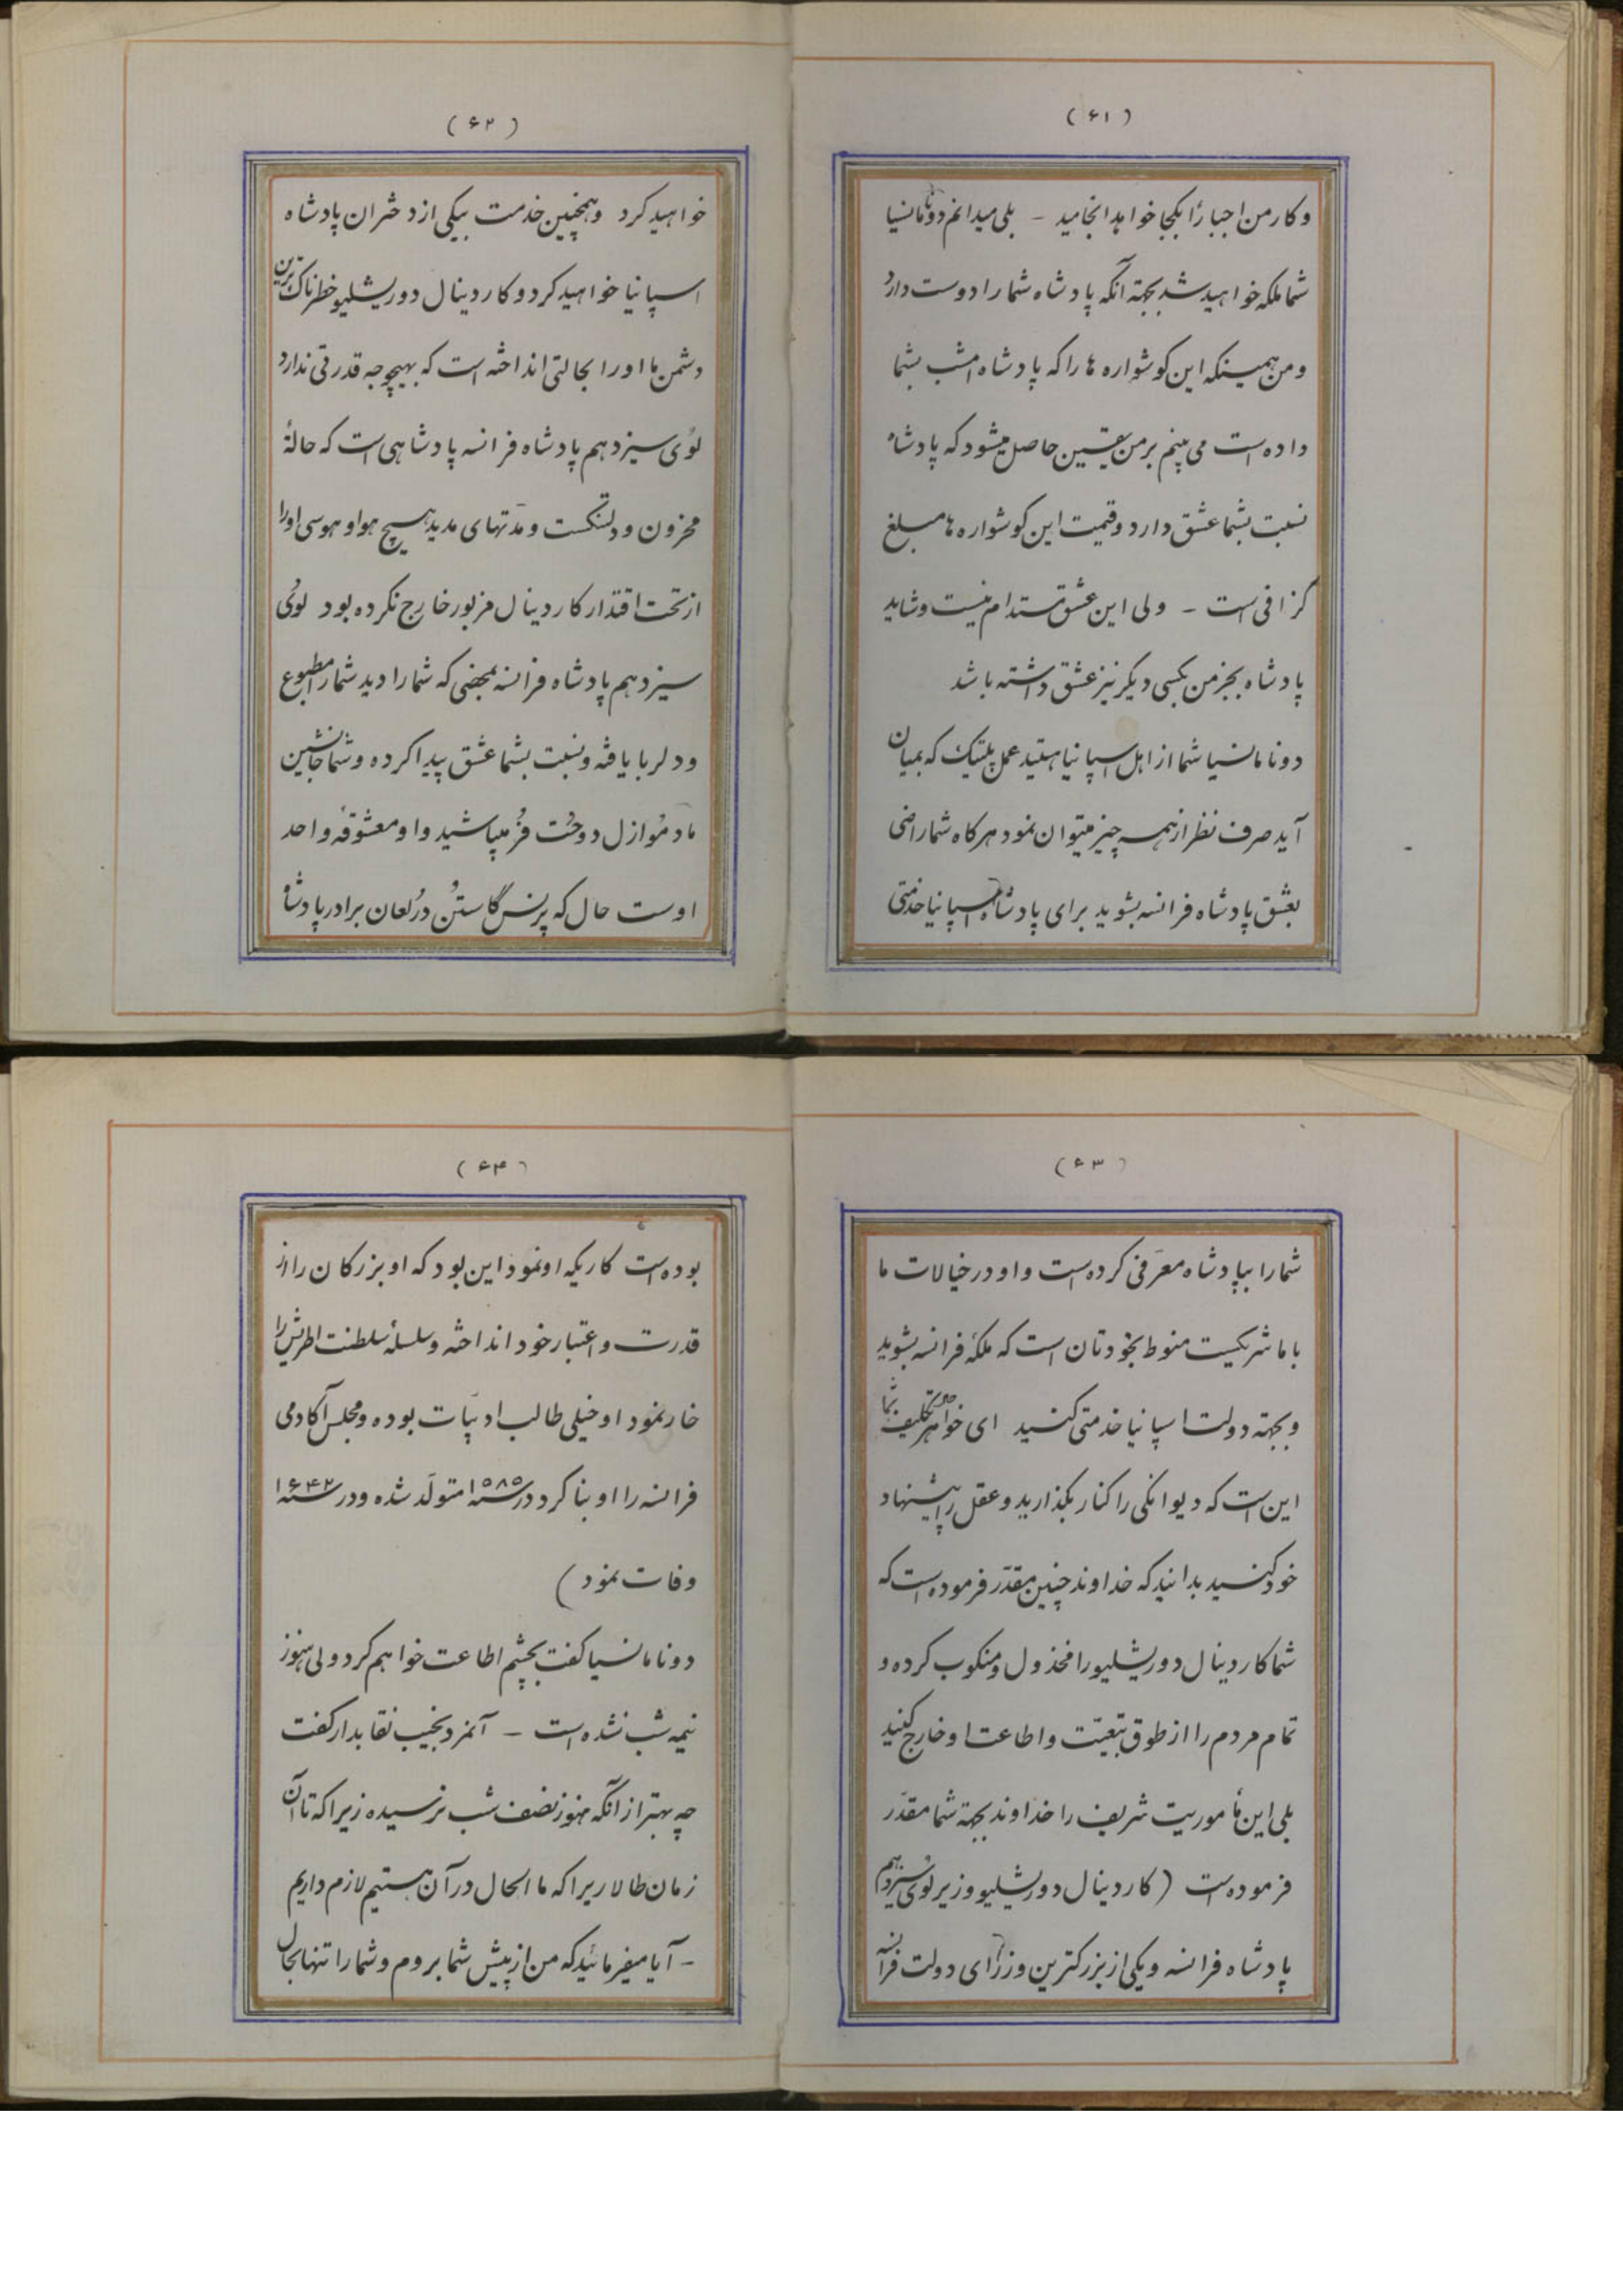 (۶۱)
و کار من اجباراً بکجا خواهد انجامید - بلی میدانم دونا مانسیا
شما ملکه خواهید شد بجهته آنکه پادشاه شما را دوست دارد
و من همینکه این کوشواره ها را که پادشاه امشب بشما
داده است می بینم بر من یقین حاصل میشود که پادشاه
نسبت بشما عشق دارد و قیمت این کوشواره ها مبلغ
کزافی است - ولی این عشق مستدام نیست و شاید
پادشاه بجز من بکسی دیکر نیز عشق داشته باشد
دونا مانسیا شما از اهل اسپانیا هستید عمل پلتیک که بمیان
آید صرف نظر از همه چیز میتوان نمود هر کاه شما راضی
بعشق پادشاه فرانسه بشوید برای پادشاه اسپانیا خدمتی
(۶۲)
خواهید کرد و همچنین خدمت بیکی از دختران پادشاه
اسپانیا خواهید کرد و کاردینال دوریشلیو خطرناک ترین
دشمن ما او را بحالتی انداخته است که بهیچوجه قدرتی ندارد
لوئی سیزدهم پادشاه فرانسه پادشاهی است که حالة
محزون و دلتنکست و مدّتهای مدید هیچ هوا و هوسی او را
از تحت اقتدار کاردینال مزبور خارج نکرده بود لوئی
سیزدهم پادشاه فرانسه بمحضی که شما را دید شما را مطبوع
و دلربا یافته و نسبت بشما عشق پیدا کرده و شما جانشین
مادموازل دوحُت فُر میباشید و او معشوقهٔ واحد
اوست حال که پرنس گاستُن دُرلعان برادر پادشاه
(۶۳)
شما را بپادشاه معرّفی کرده است و او در خیالات ما
با ما شریکست منوط بخودتان است که ملکهٔ فرانسه بشوید
و بجهته دولت اسپانیا خدمتی کنید ای خواهر تکلیف شما
این است که دیوانکی را کنار بکذارید و عقل را پیشنهاد
خود کنید بدانید که خداوند چنین مقدّر فرموده است که
شما کاردینال دوریشلیو را مخذول و منکوب کرده و
تمام مردم را از طوق تبعیّت و اطاعت او خارج کنید
بلی این مأموریت شریف را خداوند بجهته شما مقدّر
فرموده است (کاردینال دوریشلیو وزیر لوئی سیزدهم
پادشاه فرانسه و یکی از بزرکترین وزرای دولت فرانسه
(۶۴)
بوده است کاریکه او نمود این بود که او بزرکان را از
قدرت و اعتبار خود انداخته و سلسلهٔ سلطنت اطریش را
خار نمود او خیلی طالب ادبیّات بوده و مجلس آکادمی
فرانسه را او بنا کرد در سنه ۱۵۸۵ متولّد شده و در سنه ۱۶۴۲
وفات نمود)
دونا مانسیا کفت بچشم اطاعت خواهم کرد ولی هنوز
نیمه شب نشده است - آنمرد نجیب نقابدار کفت
چه بهتر از آنکه هنوز نصف شب نرسیده زیرا که تا آن
زمان طالاریرا که ما الحال در آن هستیم لازم داریم
- آیا میفرمائید که من از پیش شما بروم و شما را تنها بحال